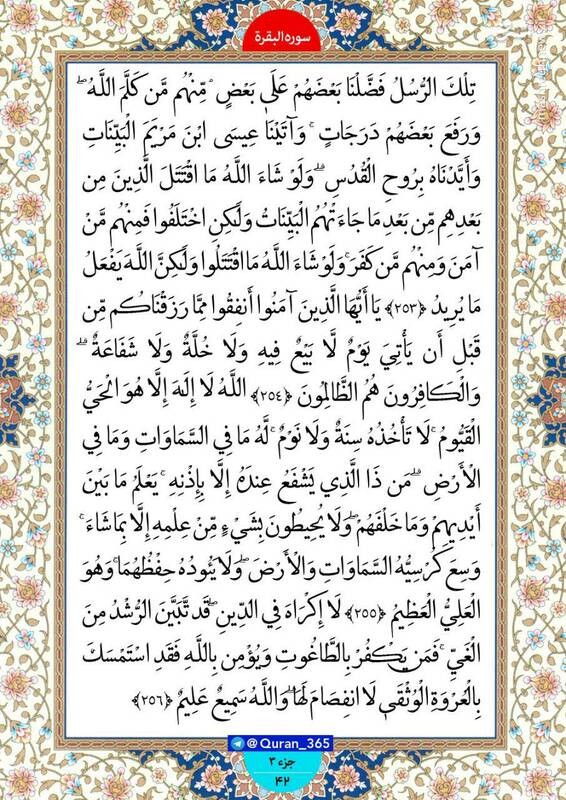 سوره البقرة
تِلْكَ الرُّسُلُ فَضَّلْنَا بَعْضَهُمْ عَلَىٰ بَعْضٍ ۘ مِّنْهُم مَّن كَلَّمَ اللَّهُ ۖ
وَرَفَعَ بَعْضَهُمْ دَرَجَاتٍ ۚ وَآتَيْنَا عِيسَى ابْنَ مَرْيَمَ الْبَيِّنَاتِ
وَأَيَّدْنَاهُ بِرُوحِ الْقُدُسِ ۗ وَلَوْ شَاءَ اللَّهُ مَا اقْتَتَلَ الَّذِينَ مِن
بَعْدِهِم مِّن بَعْدِ مَا جَاءَتْهُمُ الْبَيِّنَاتُ وَلَٰكِنِ اخْتَلَفُوا فَمِنْهُم مَّنْ
آمَنَ وَمِنْهُم مَّن كَفَرَ ۚ وَلَوْ شَاءَ اللَّهُ مَا اقْتَتَلُوا وَلَٰكِنَّ اللَّهَ يَفْعَلُ
مَا يُرِيدُ ﴿٢٥٣﴾ يَا أَيُّهَا الَّذِينَ آمَنُوا أَنفِقُوا مِمَّا رَزَقْنَاكُم مِّن
قَبْلِ أَن يَأْتِيَ يَوْمٌ لَّا بَيْعٌ فِيهِ وَلَا خُلَّةٌ وَلَا شَفَاعَةٌ ۗ
وَالْكَافِرُونَ هُمُ الظَّالِمُونَ ﴿٢٥٤﴾ اللَّهُ لَا إِلَٰهَ إِلَّا هُوَ الْحَيُّ
الْقَيُّومُ ۚ لَا تَأْخُذُهُ سِنَةٌ وَلَا نَوْمٌ ۚ لَّهُ مَا فِي السَّمَاوَاتِ وَمَا فِي
الْأَرْضِ ۗ مَن ذَا الَّذِي يَشْفَعُ عِندَهُ إِلَّا بِإِذْنِهِ ۚ يَعْلَمُ مَا بَيْنَ
أَيْدِيهِمْ وَمَا خَلْفَهُمْ ۖ وَلَا يُحِيطُونَ بِشَيْءٍ مِّنْ عِلْمِهِ إِلَّا بِمَا شَاءَ ۚ
وَسِعَ كُرْسِيُّهُ السَّمَاوَاتِ وَالْأَرْضَ ۖ وَلَا يَئُودُهُ حِفْظُهُمَا ۚ وَهُوَ
الْعَلِيُّ الْعَظِيمُ ﴿٢٥٥﴾ لَا إِكْرَاهَ فِي الدِّينِ ۖ قَد تَّبَيَّنَ الرُّشْدُ مِنَ
الْغَيِّ ۚ فَمَن يَكْفُرْ بِالطَّاغُوتِ وَيُؤْمِن بِاللَّهِ فَقَدِ اسْتَمْسَكَ
بِالْعُرْوَةِ الْوُثْقَىٰ لَا انفِصَامَ لَهَا ۗ وَاللَّهُ سَمِيعٌ عَلِيمٌ ﴿٢٥٦﴾
@Quran_365
جزء ۳
۴۲